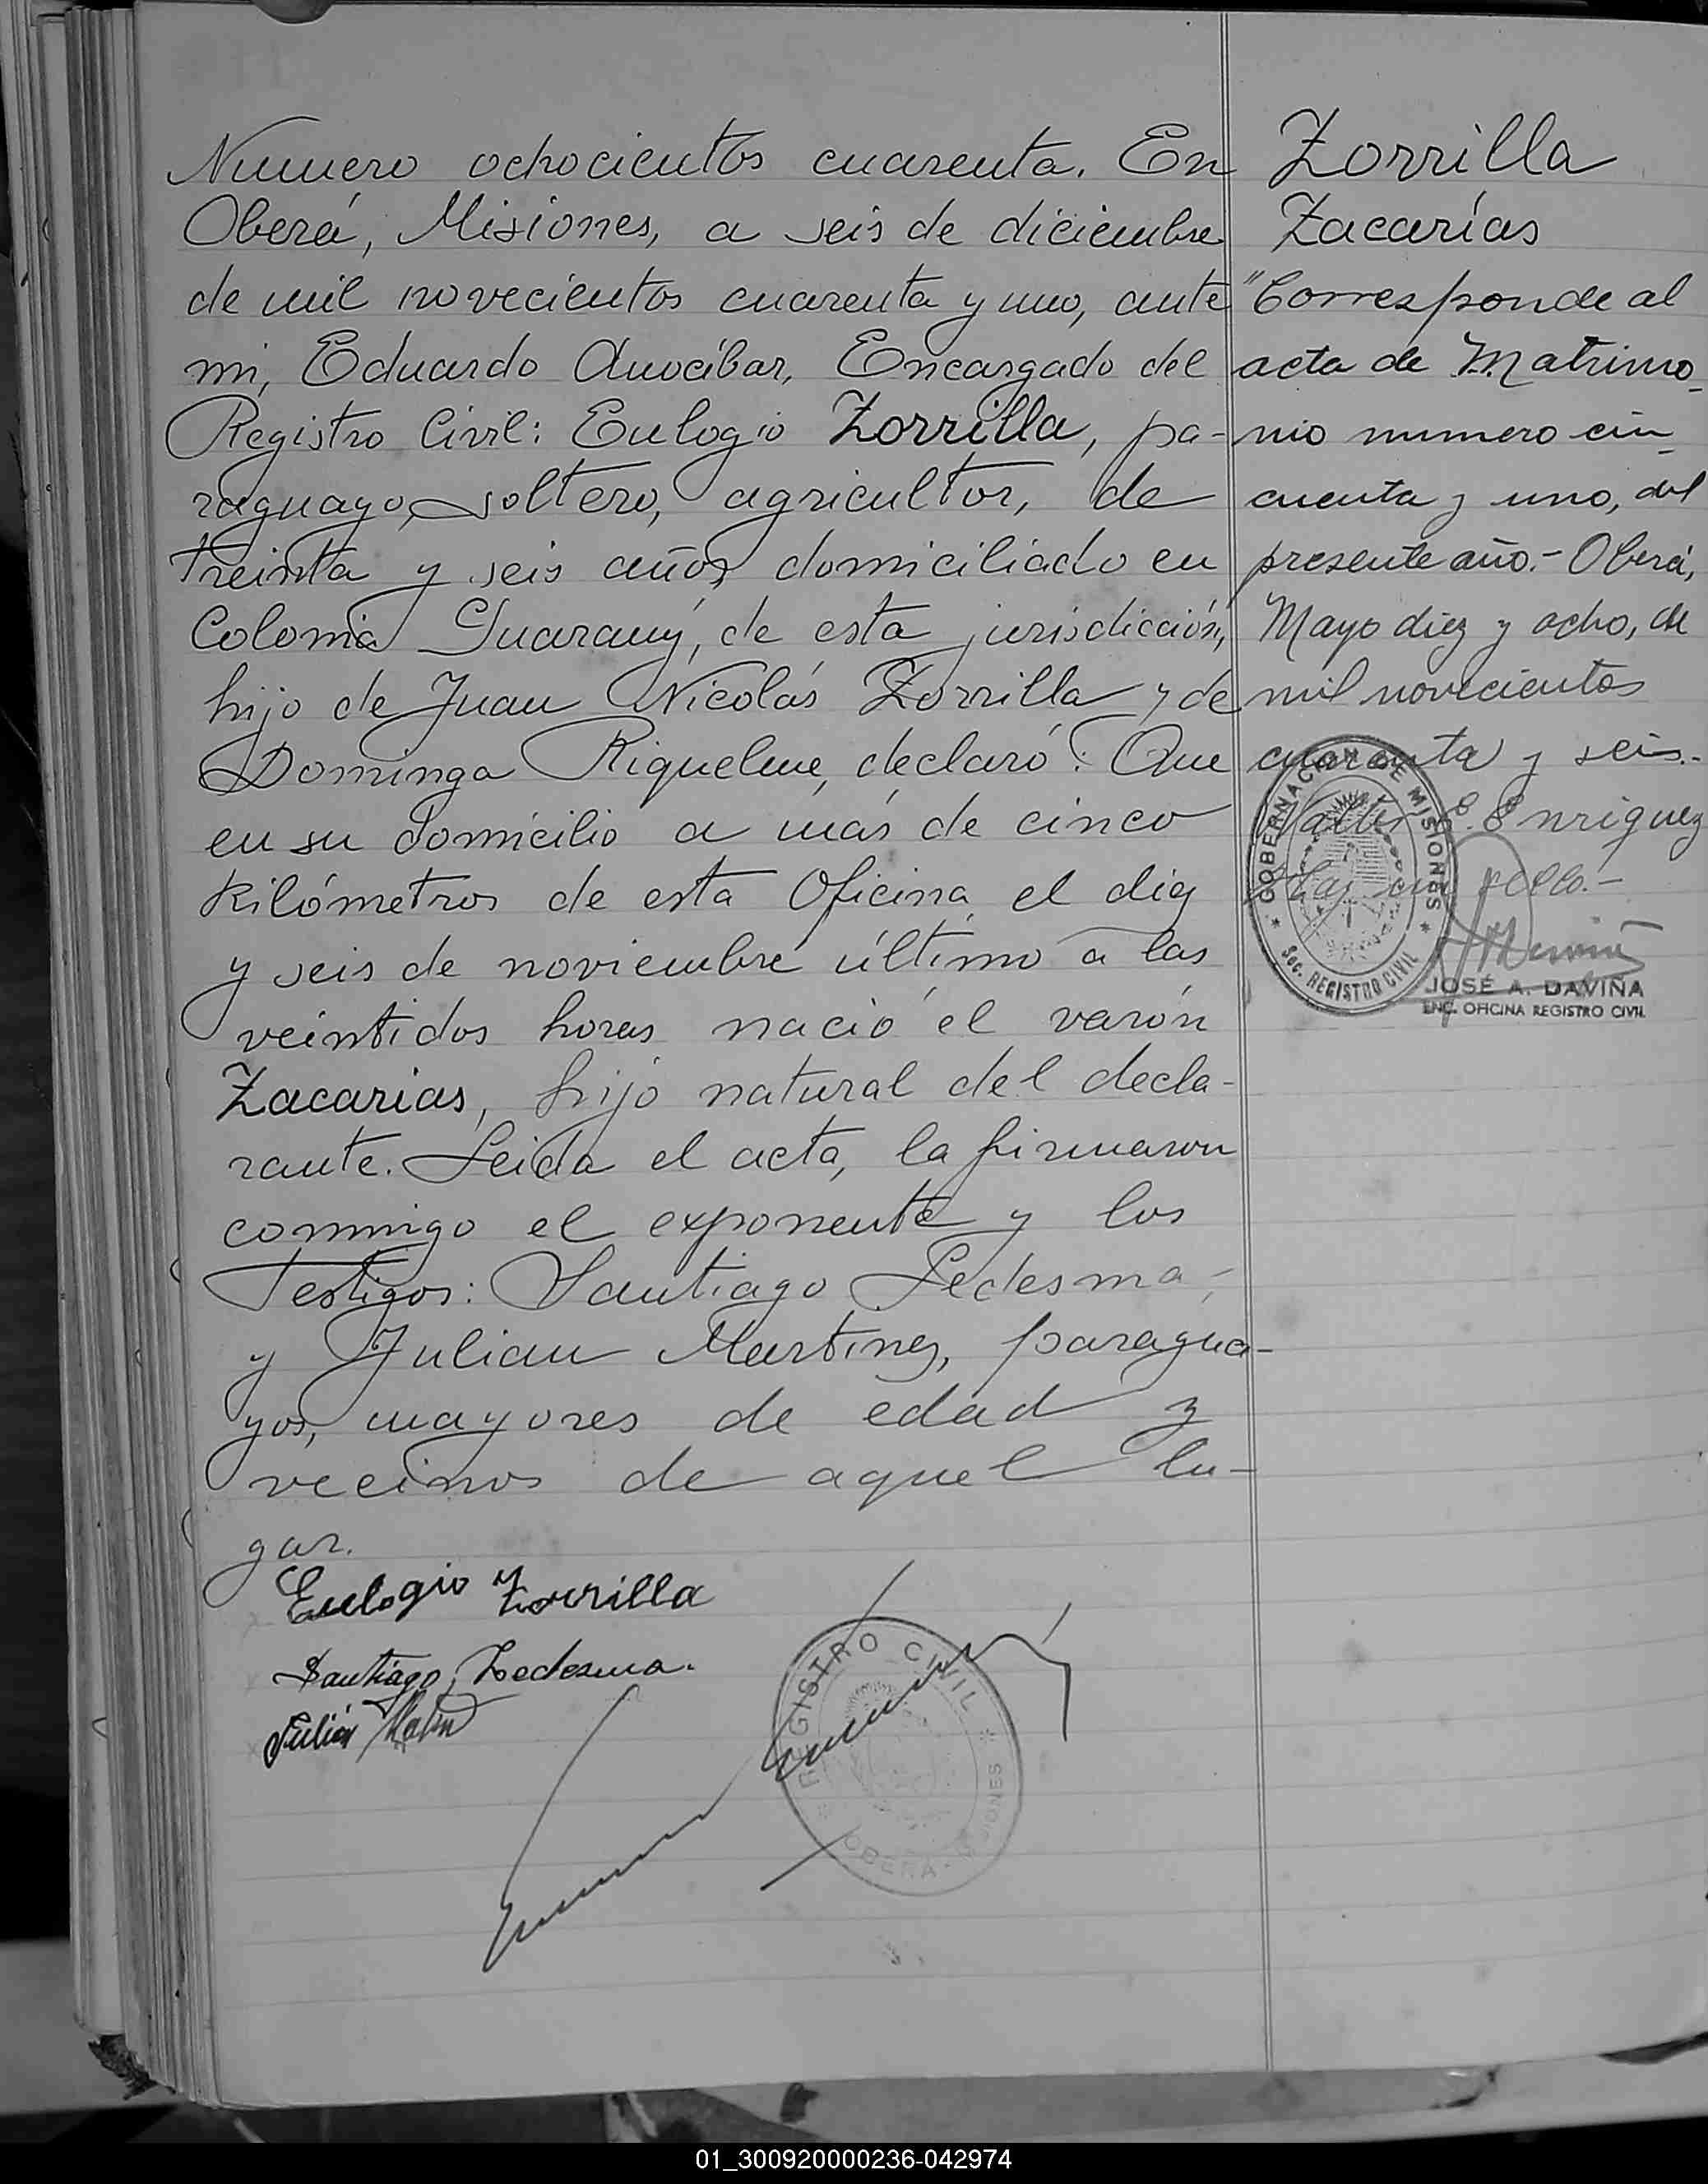 Numero ochocientos cuarenta. En
Oberá, Misiones, a seis de diciembre
de mil novecientos cuarenta y uno, ante
mi, Eduardo Anocíbar, Encargado del
Registro Civil: Eulogio Zorrilla, pa-
raguayo, soltero, agricultor, de
treinta y seis años domiciliado en
Colonia Guarany, de esta jurisdicción,
hijo de Juan Nicolás Zorrilla y de
Dominga Riquelme, declaró: Que
en su domicilio a más de cinco
Kilómetros de esta Oficina el diez
y seis de noviembre último a las
veintidos horas nació el varón
Zacarias, hijo natural del decla-
rante. Leida el acta, la firmaron
conmigo el exponente y los
Testigos: Santiago Ledesma,
y Julian Martinez, paragua-
yos, mayores de edad y
vecinos de aquel lu-
gar.
Eulogio Zorrilla
Santiago Ledesma.
Julián
REGISTRO CIVIL
OBERA - MISIONES
Zorrilla
Zacarías
"Corresponde al
acta de Matrimo_
nio numero cin_
cuenta y uno, del
presente año.- Oberá,
Mayo diez y ocho, de
mil novecientos
cuarenta y seis.-
E. Enriquez
Hay un sello.-
GOBERNACION DE MISIONES
Sec. REGISTRO CIVIL
JOSÉ A. DAVIÑA
ENC. OFICINA REGISTRO CIVIL
01_300920000236-042974